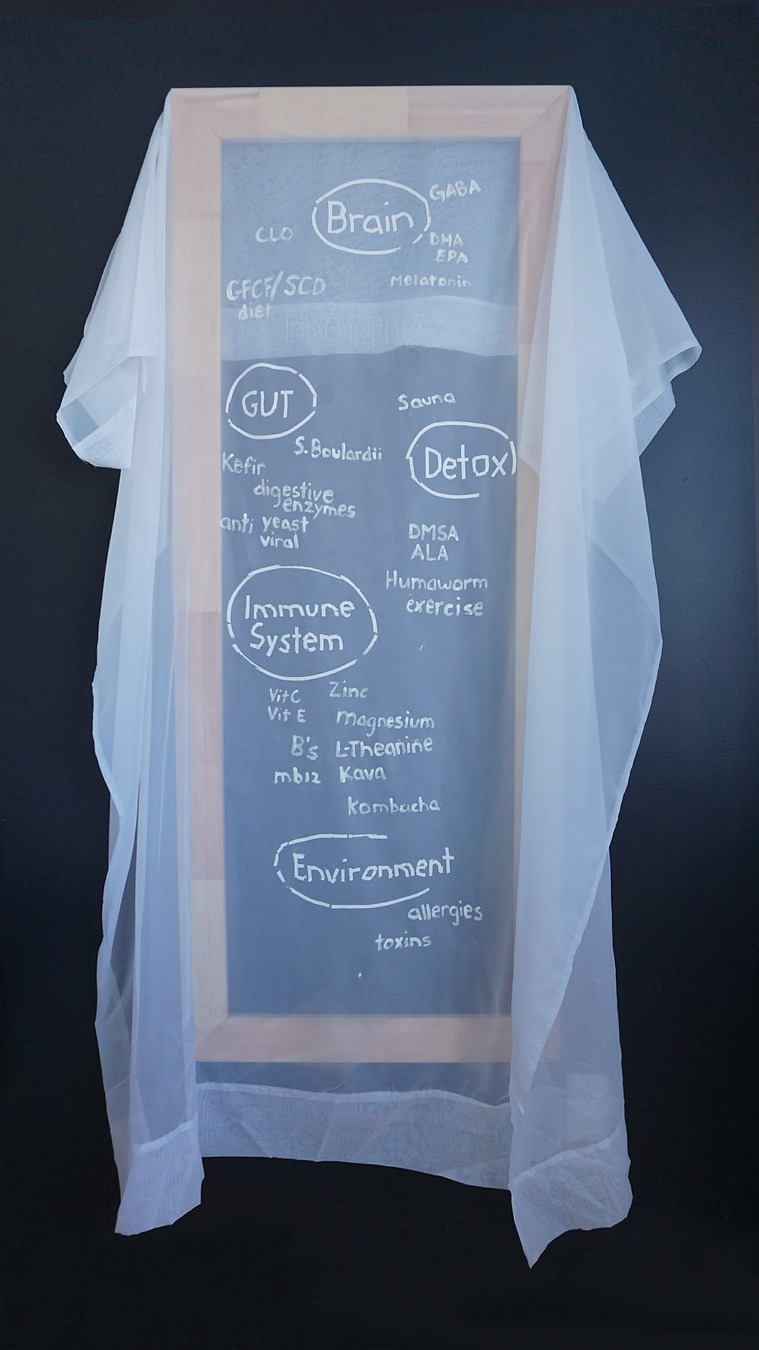 Brain
GABA
CLO
DHA
EPA
GFCF/SCD
diet
Melatonin
GUT
Sauna
S. Boulardii
Detox
Kefir
digestive
enzymes
anti yeast
viral
DMSA
ALA
Humaworm
exercise
Immune
System
Vit C
Zinc
Vit E
magnesium
B's
L-Theanine
mb12
Kava
Kombucha
Environment
allergies
toxins